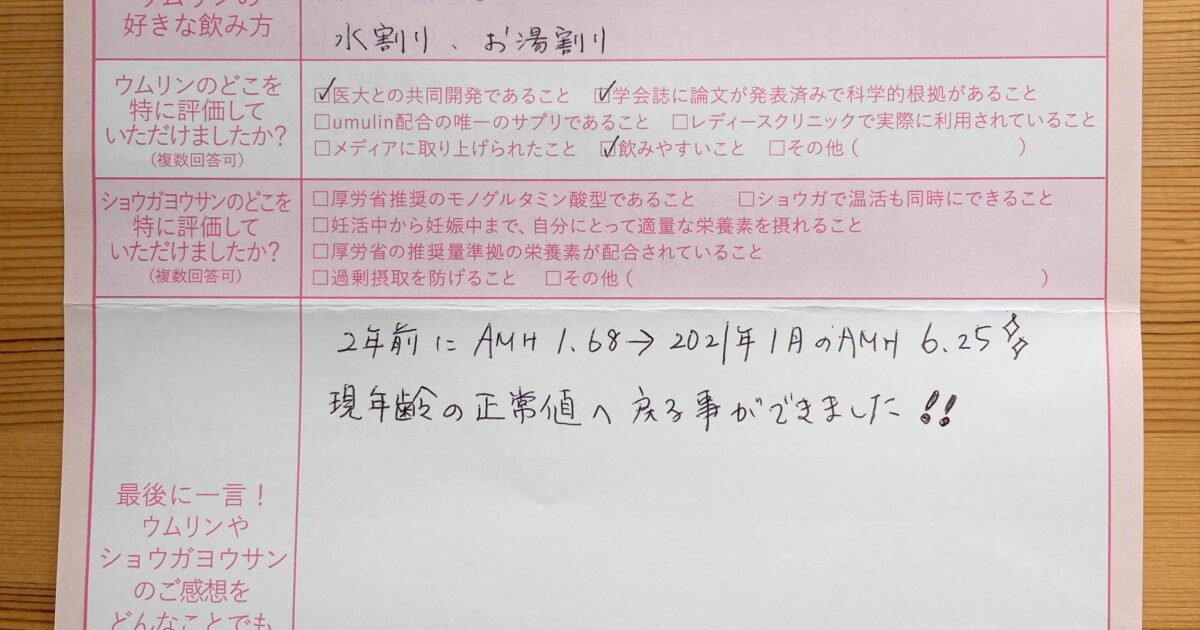 ウムリンの
好きな飲み方
水割り、お湯割り
ウムリンのどこを
特に評価して
いただけましたか?
(複数回答可)
☑医大との共同開発であること ☑学会誌に論文が発表済みで科学的根拠があること
□umulin配合の唯一のサプリであること □レディースクリニックで実際に利用されていること
□メディアに取り上げられたこと ☑飲みやすいこと □その他( )
ショウガヨウサンのどこを
特に評価して
いただけましたか?
(複数回答可)
□厚労省推奨のモノグルタミン酸型であること □ショウガで温活も同時にできること
□妊活中から妊娠中まで、自分にとって適量な栄養素を摂れること
□厚労省の推奨量準拠の栄養素が配合されていること
□過剰摂取を防げること □その他( )
2年前に AMH 1.68→2021年1月のAMH 6.25
現年齢の正常値へ戻る事ができました!!
最後に一言!
ウムリンや
ショウガヨウサン
のご感想を
どんなことでも